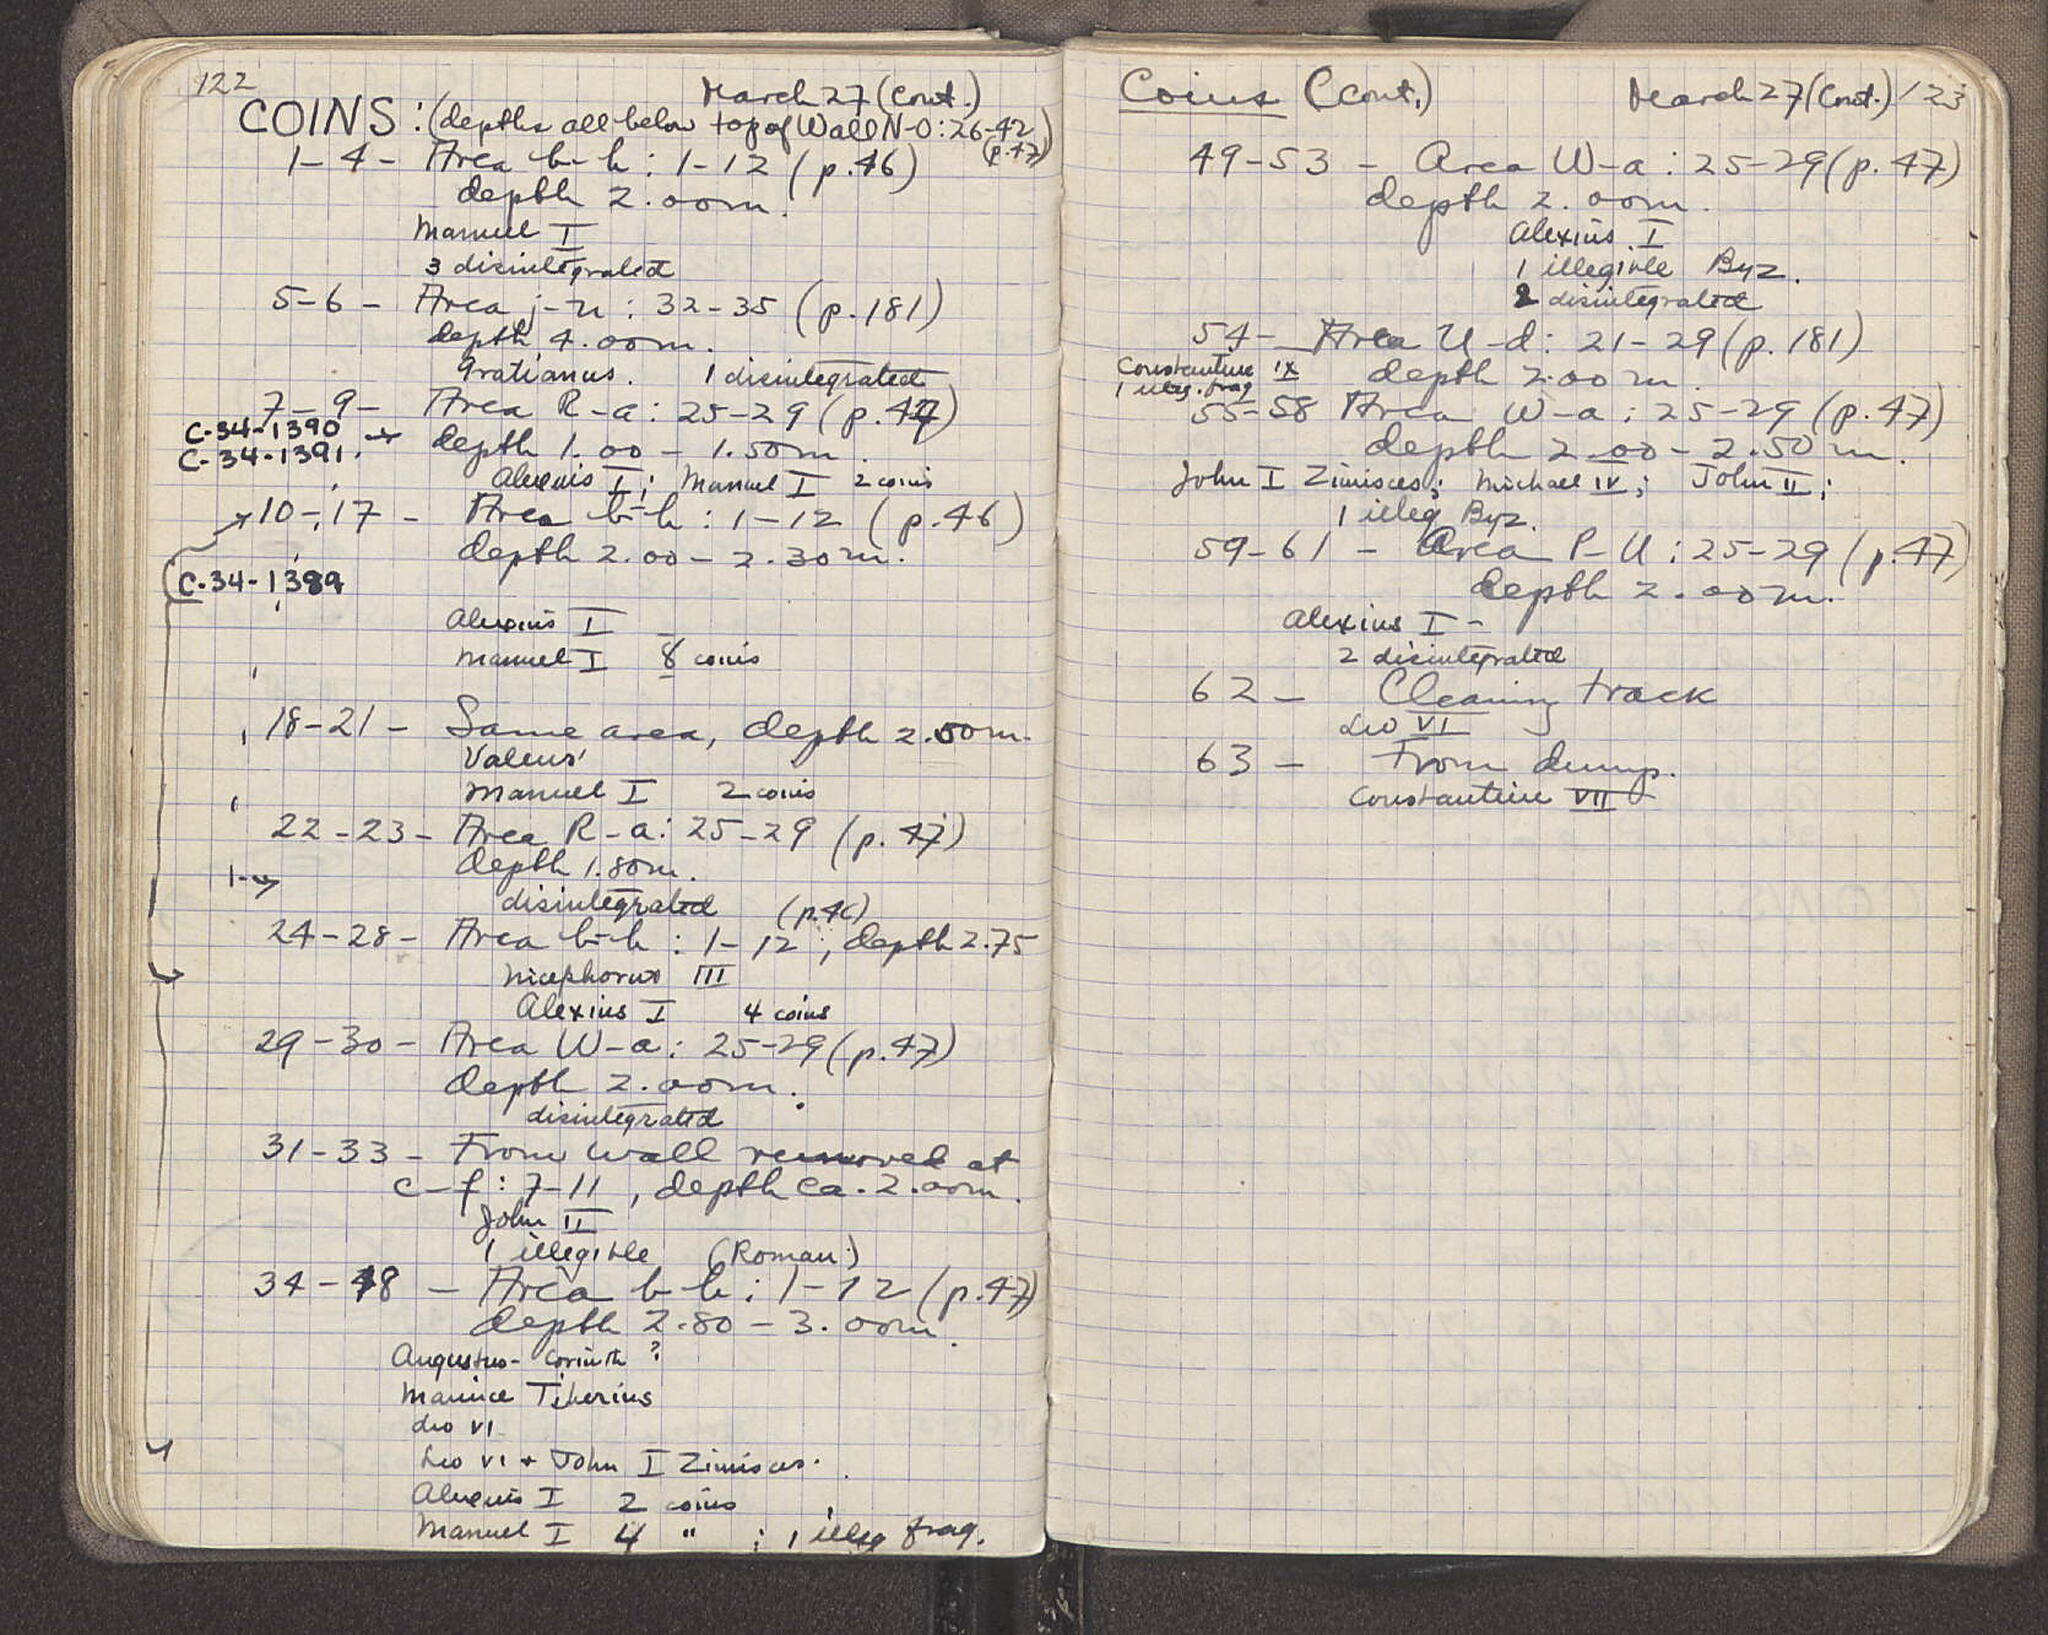 122
March 27 (Cont.)
COINS: (depths all below top of Wall N-O: 26-42
(p. 47))
1-4- Area b-h: 1-12 (p. 46)
depth 2.00m.
Manuel I
3 disintegrated
5-6- Area j-n: 32-35 (p. 181)
depth 4.00m.
Gratianus. 1 disintegrated
7-9- Area R-a: 25-29 (p. 47)
C-34-1390
C-34-1391. depth 1.00-1.50m.
Alexius I; Manuel I 2 coins
10-17- Area b-h: 1-12 (p. 46)
depth 2.00-2.30m.
C-34-1389
Alexius I
Manuel I 8 coins
18-21- Same area, depth 2.50m.
Valens
Manuel I 2 coins
22-23- Area R-a: 25-29 (p. 47)
depth 1.80m.
disintegrated (p. 46)
24-28- Area b-h: 1-12, depth 2.75
Nicephorus III
Alexius I 4 coins
29-30- Area W-a: 25-29 (p. 47)
depth 2.00m.
disintegrated
31-33- From wall removed at
c-f: 7-11, depth ca. 2.00m.
John II
1 illegible (Roman)
34-48 - Area b-h: 1-12 (p. 47)
depth 2.80-3.00m.
Augustus- Corinth ?
Maurice Tiberius
Leo VI
Leo VI + John I Zimisces.
Alexius I 2 coins
Manuel I 4 " ; 1 illeg frag.
Coins (Cont.) March 27 (Cont.) 123
49-53 - Area W-a: 25-29 (p. 47)
depth 2.00m.
Alexius I
1 illegible Byz.
2 disintegrated
54- Area U-d: 21-29 (p. 181)
Constantine IX depth 2.00m.
1 illeg. frag
55-58 Area W-a: 25-29 (p. 47)
depth 2.00-2.50m.
John I Zimisces; Michael IV; John II;
1 illeg Byz.
59-61 - Area P-U: 25-29 (p. 47)
depth 2.00m.
Alexius I -
2 disintegrated
62- Cleaning track
Leo VI
63- From dump.
Constantine VII